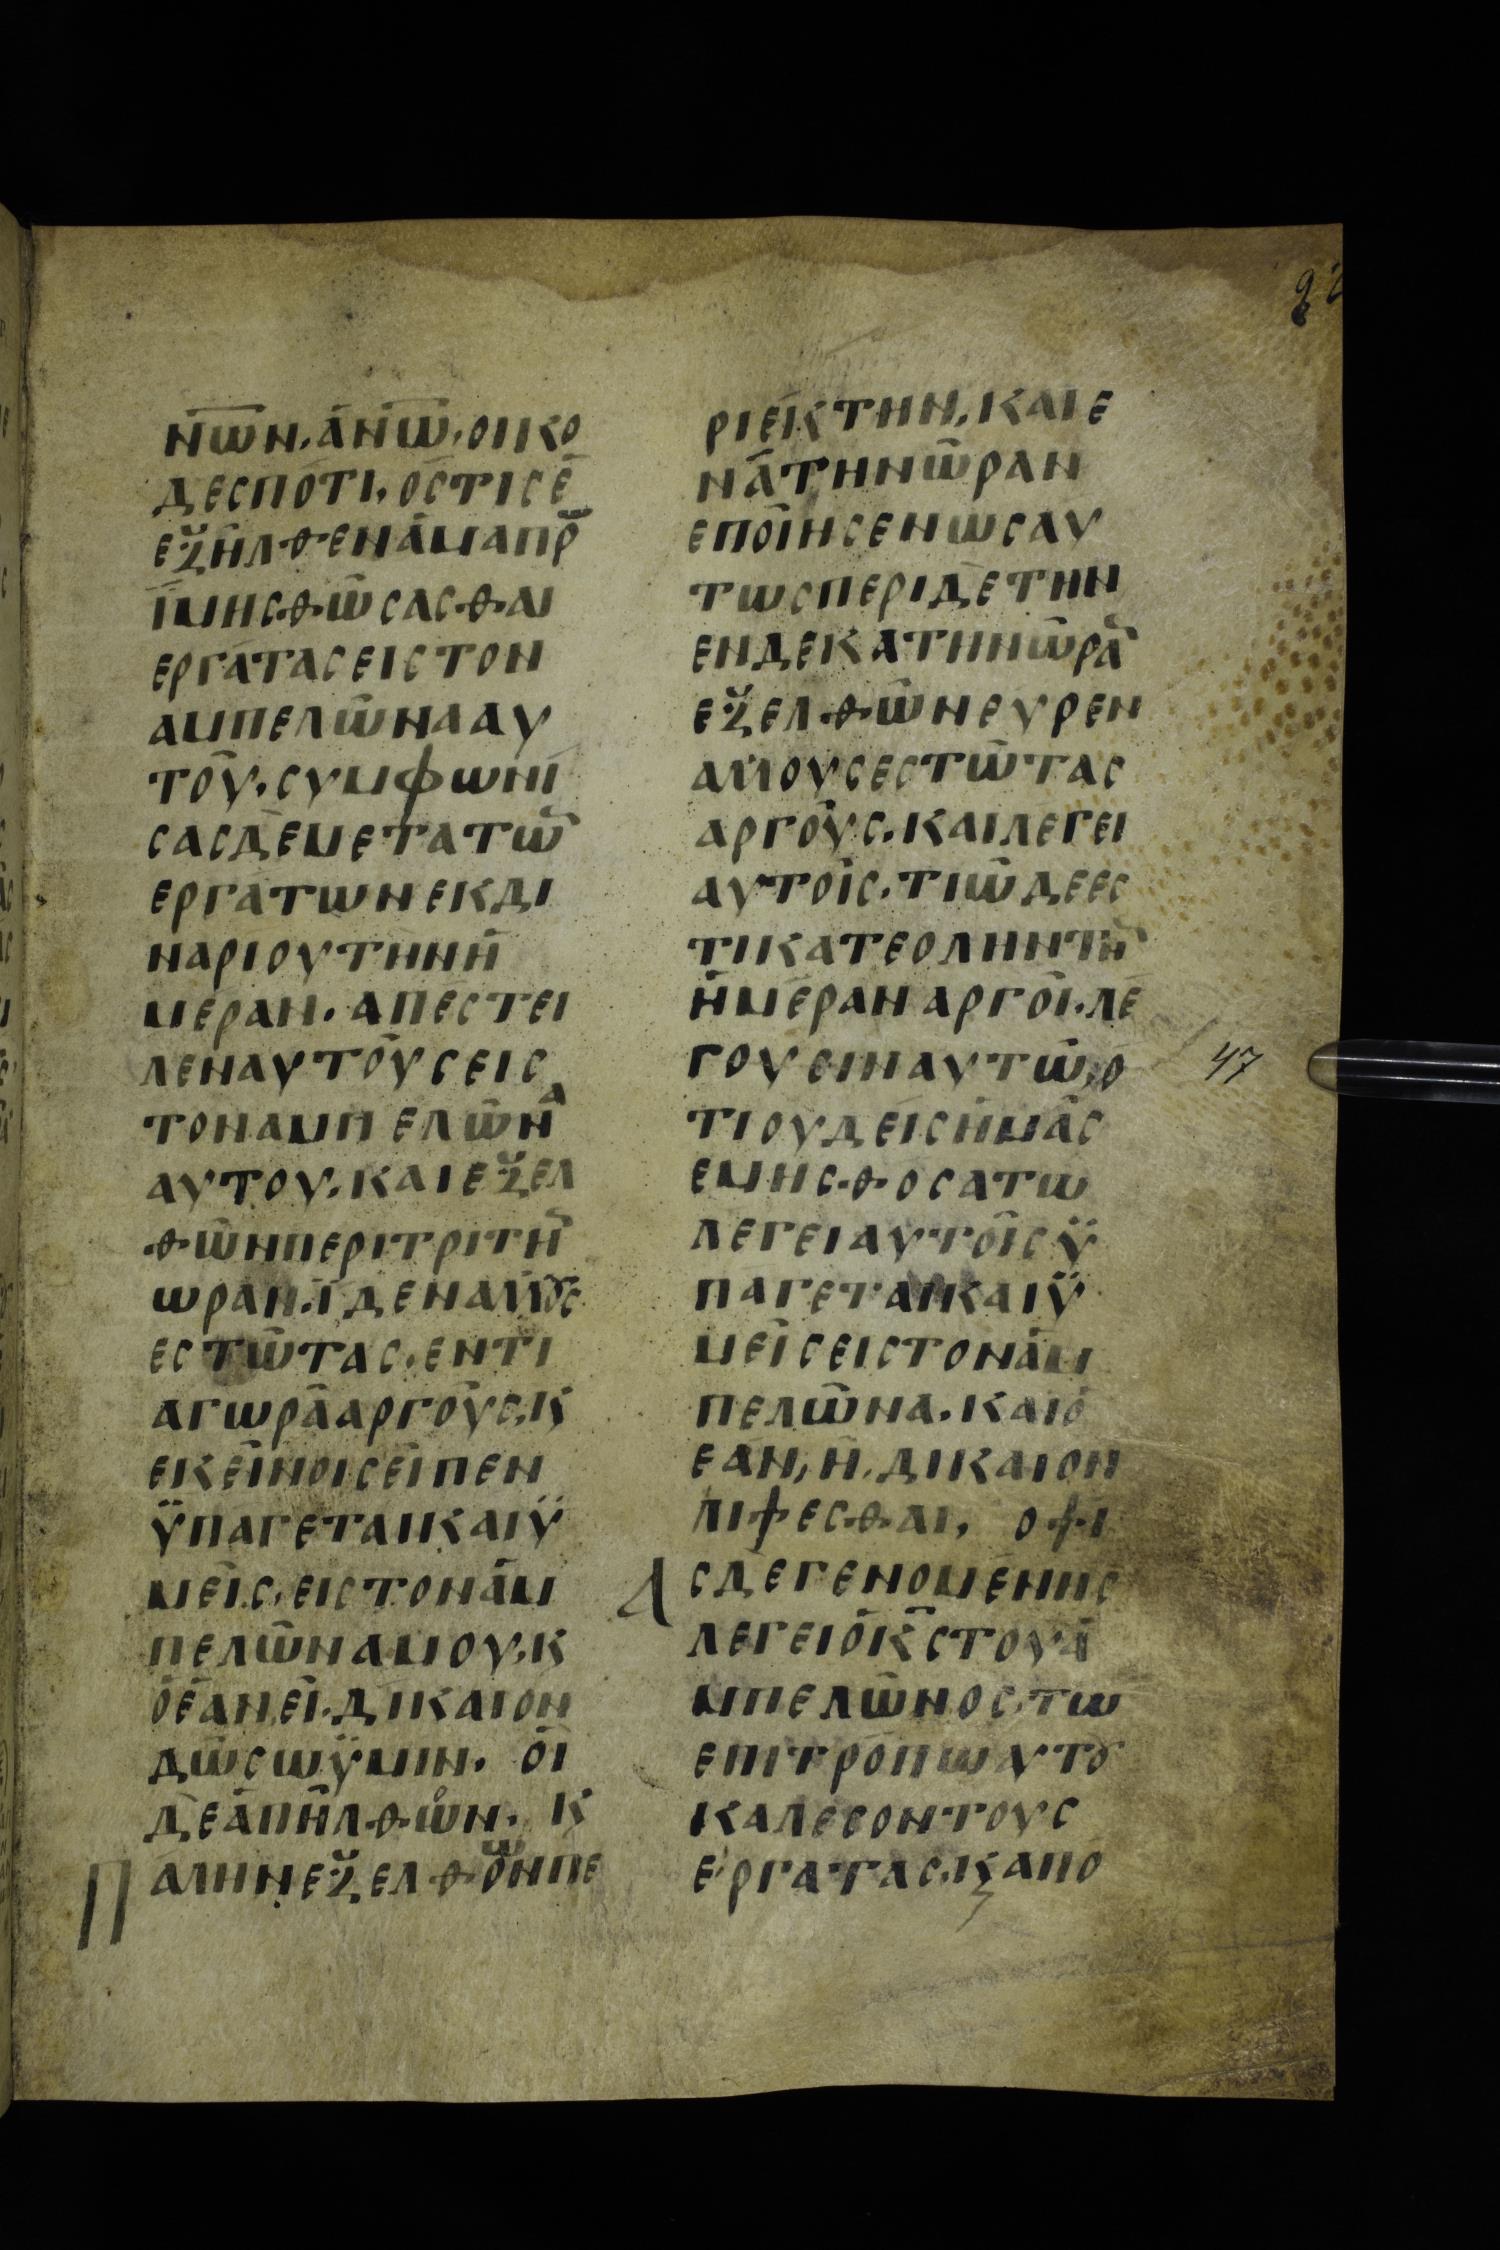 ΝῶΝ. ἀΝῶ. ΟΙΚΟ
ΔΕCΠΟΤΙ, ΟCΤΙCΕ
ΕΞΗΛΘΕΝΑΜΑΠΡ
ΙΜΗCΘΩCΑCΘΑΙ
ΕΡΓΑΤΑCΕΙCΤΟΝ
ΑΜΠΕΛΩΝΑΑΥ
ΤΟΥ. CΥΜΦΩΝΙ
CΑCΔΕΜΕΤΑΤΩ
ΕΡΓΑΤΩΝΕΚΔΙ
ΝΑΡΙΟΥΤΗΝΗ
ΜΕΡΑΝ. ΑΠΕCΤΕΙ
ΛΕΝΑΥΤΟΥCΕΙC
ΤΟΝΑΜΠΕΛΩΝΑ
ΑΥΤΟΥ. ΚΑΙΕΞΕΛ
ΘΩΝΠΕΡΙΤΡΙΤΗ
ΩΡΑΝ. ΪΔΕΝΑΛΛȣC
ΕCΤΩΤΑC. ΕΝΤΙ
ΑΓΩΡΑΑΡΓΟΥC. Κ
ΕΚΕΙΝΟΙCΕΙΠΕΝ
ΫΠΑΓΕΤΑΙΚΑΙΫ
ΜΕΙC. ΕΙCΤΟΝΑΜ
ΠΕΛΩΝΑΜΟΥ. Κ
ΟΕΑΝΕΙ. ΔΙΚΑΙΟΝ
ΔΩCΩΫΜΙΝ. ΟΙ
ΔΕΑΠΗΛΘΩΝ. Κ
ΠΑΛΗΝΕΞΕΛΘΟΩΝΠΕ
ΡΙΕΚΤΗΝ. ΚΑΙΕ
ΝΑΤΗΝΩΡΑΝ
ΕΠΟΙΗCΕΝΩCΑΥ
ΤΩCΠΕΡΙΔΕΤΗΝ
ΕΝΔΕΚΑΤΗΝΩΡΑ
ΕΞΕΛΘΩΝΕΥΡΕΝ
ΑΛΛΟΥCΕCΤΩΤΑC
ΑΡΓΟΥC. ΚΑΙΛΕΓΕΙ
ΑΥΤΟΙC. ΤΙΩΔΕΕC
ΤΙΚΑΤΕΟΛΗΝΤΗ
ΗΜΕΡΑΝΑΡΓΟΙ. ΛΕ
ΓΟΥCΙΝΑΥΤΩ, Ο
47
ΤΙΟΥΔΕΙCΗΜΑC
ΕΜΗCΘΟCΑΤΩ
ΛΕΓΕΙΑΥΤΟΙCΫ
ΠΑΓΕΤΑΙΚΑΙΫ
ΜΕΙCΕΙCΤΟΝΑΜ
ΠΕΛΩΝΑ. ΚΑΙΟ
ΕΑΝ, Η. ΔΙΚΑΙΟΝ
ΛΙΦΕCΘΑΙ, ΟΦΙ
CΔΕΓΕΝΟΜΕΝΗC
ΛΛΕΓΕΙΟΚCΤΟΥΑ
ΜΠΕΛΩΝΟC. ΤΩ
ΕΠΙΤΡΟΠΩΑΥΤȣ
ΚΑΛΕCΟΝΤΟΥC
ΕΡΓΑΤΑC. Κ ΑΠΟ